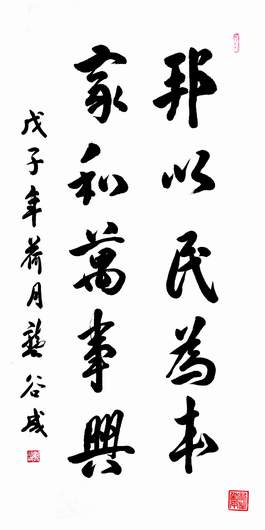 邦以民為本
家和萬事興
戊子年荷月龔谷成